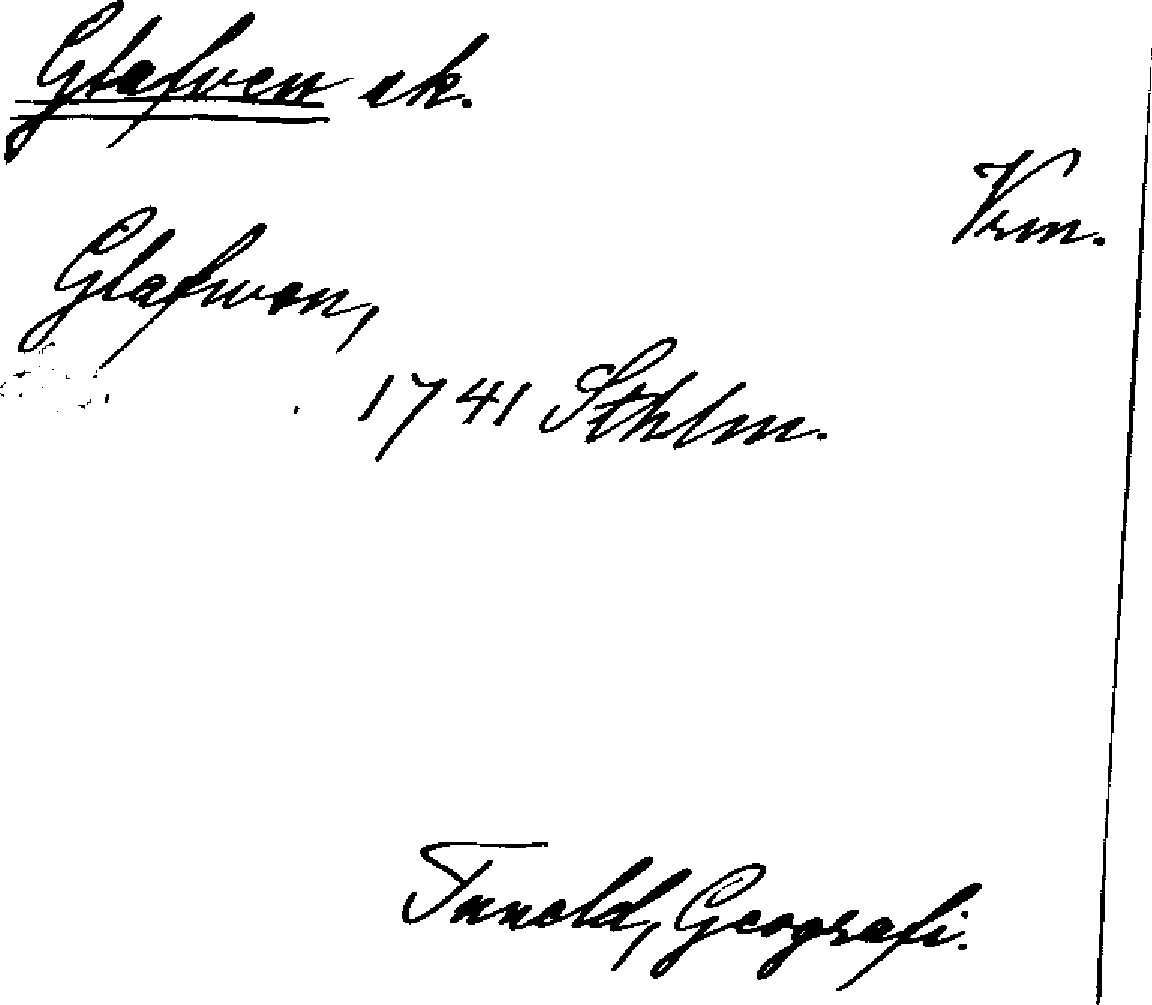 Glafwen sk.
Vrm.
Glafwen,
1741 Sthlm.
Tuneld, Geografi.